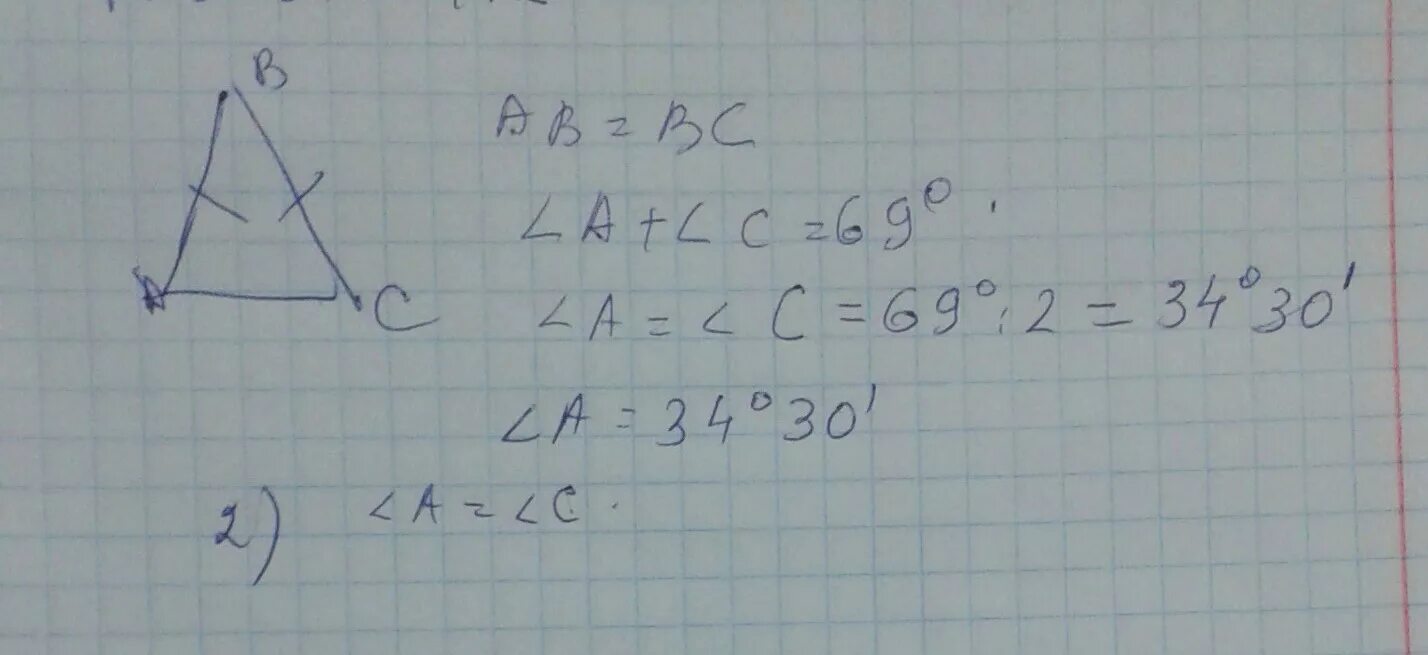 B
AB = BC
∠A + ∠C = 69°.
A
C
∠A = ∠C = 69° : 2 = 34°30'
∠A = 34°30'
2) ∠A = ∠C.